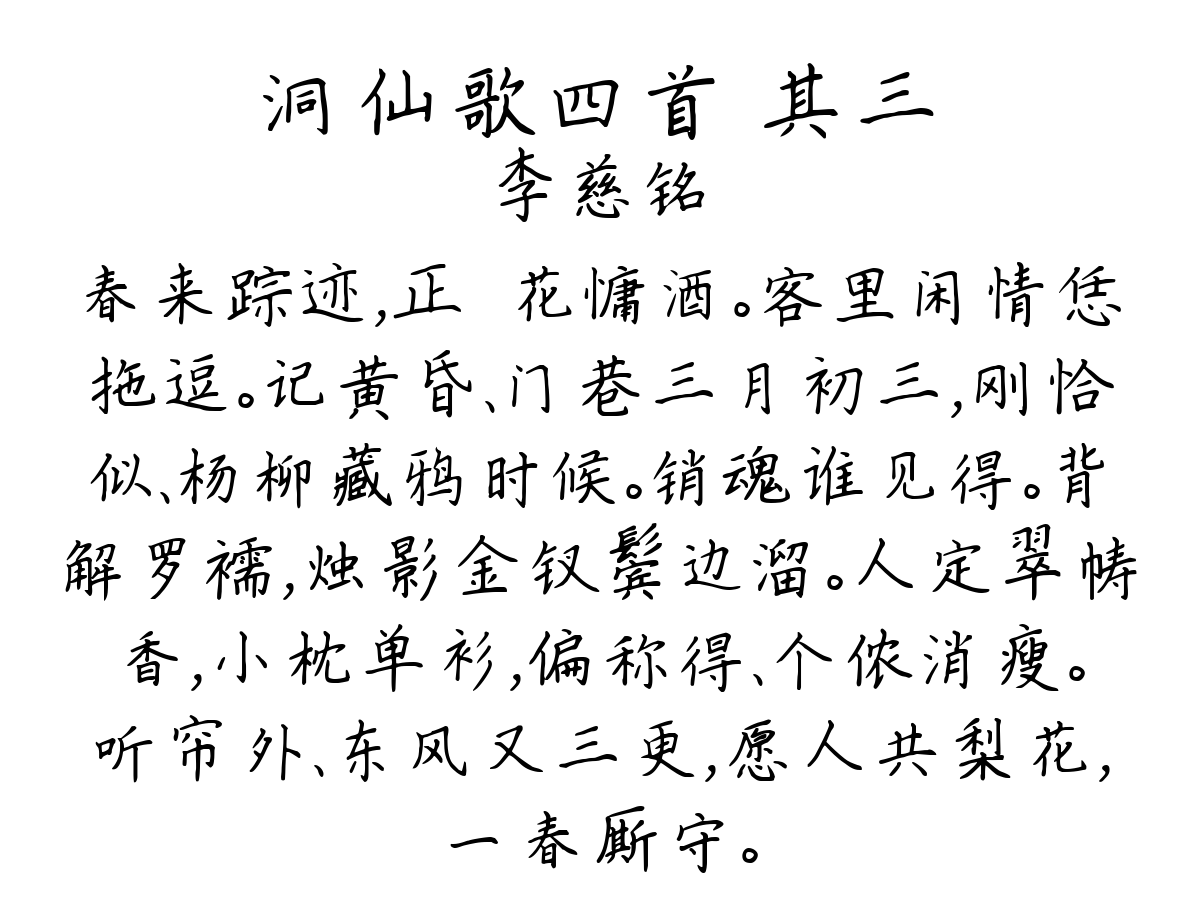 洞仙歌四首 其三
李慈铭
春来踪迹,正 花慵酒。客里闲情恁
拖逗。记黄昏、门巷三月初三,刚恰
似、杨柳藏鸦时候。销魂谁见得。背
解罗襦,烛影金钗鬓边溜。人定翠帱
香,小枕单衫,偏称得、个侬消瘦。
听帘外、东风又三更,愿人共梨花,
一春厮守。